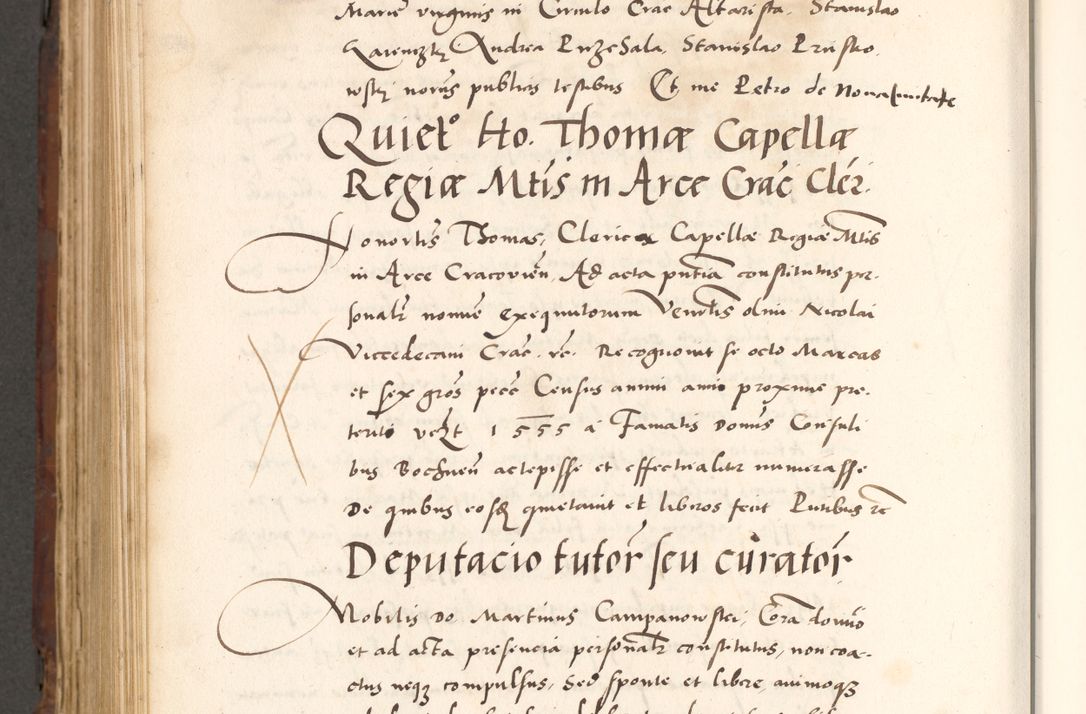 Marie virginis in Circulo Crac Altarista. Stanislao
Andrea Stanislao
publicis testibus Et me Petro de
Quiet⁰ Ho. Thomæ Capellæ
Regiæ Mtis in Arce Crac̄ Clēr.
Honorlis Thomas, Clericus Capellæ Regiæ Mtis
in Arce Cracovien̄. Ad acta pn̄tia constitutus per-
sonalr nomine exequutorum Venrlis olim Nicolai
Vicedecani Crac̄. rc̄. Recognovit se octo Marcas
et sex gros pecc̄ Census annui anni proxime pre-
teriti 1555 a Famatis Domis Consuli
bus Bochnen̄ accepisse et effectualitr numerasse
De quibus quietavit et liberos fecit Pn̄tibus rc̄
Deputacio tutor̄ seu curator̄
Nobilis Do. Martinus Campanowskj, Cora domio
et ad acta presencia personalr constitutus, non coa-
ctus neqꝫ compulsus, Sed sponte et libere, animoqꝫ